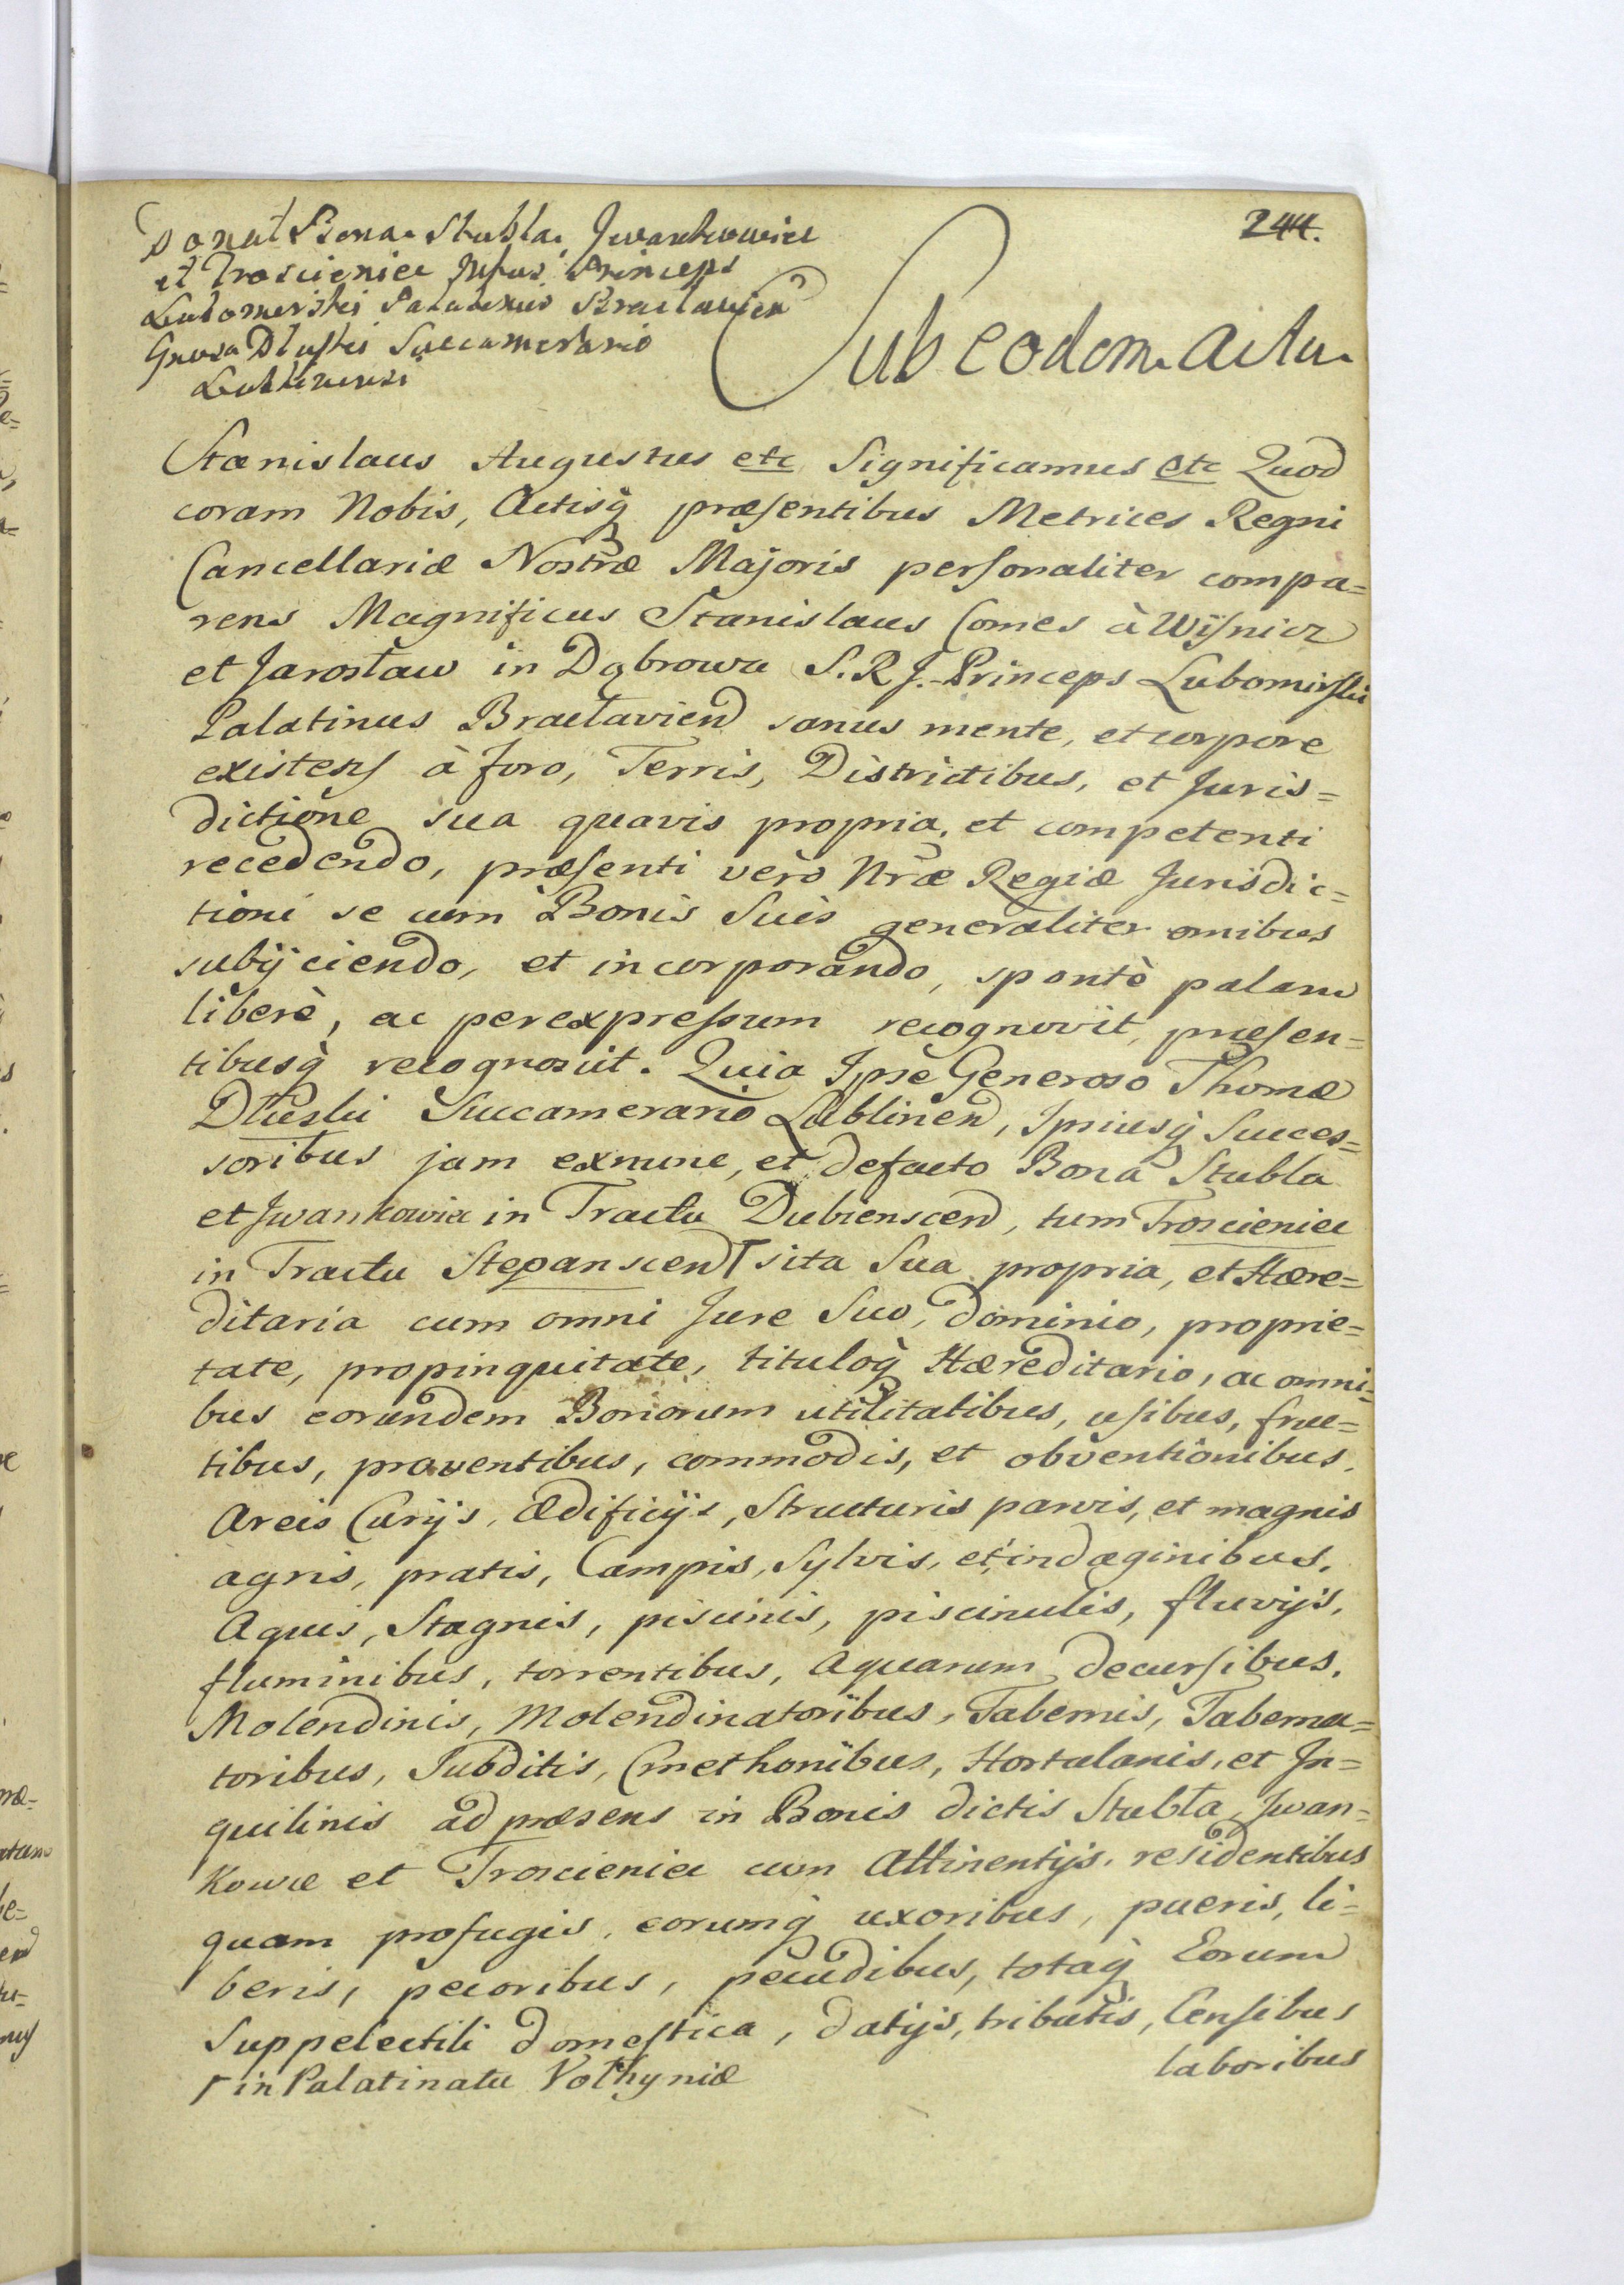 244.
Donat Bona Stubla, Jwankowice
et Troscieniec Jllus Princeps
Lubomirski Palatinus Braclavien
Gnroso Dluski Succamerario
Lublinensi
Sub eodem Actu
Stanislaus Augustus etc Significamus etc Quod
coram Nobis, Actisq̀ præsentibus Metrices Regni
Cancellariæ Nostræ Majoris personaliter compa=
rens Magnificus Stanislaus Comes à Wiſnicz
et Jarosław in Dąbrowa S. R. J. Princeps Lubomirski
Palatinus Bracłavien sanus mente, et corpore
existens à foro, Terris, Districtibus, et Juris=
dictione sua quavis propria, et competenti
recedendo, præsenti verò Nræ Regiæ Jurisdic=
tioni se cum Bonis Suis generaliter omibus
subijciendo, et incorporando, spontè palam
liberè, ac per expressum recognovit, præsen=
tibusq̀ recognoscit. Quia Jpse Generoso Thomæ
Dłuski Succamerario Lublinen, Jpsiusq̀ Succes=
soribus jam exnunc, et defacto Bona Stubla
et Jwankowice in Tractu Dubienscen, tum Troscieniec
in Tractu Stepanscen ⌈ sita Sua propria, et Hære=
ditaria cum omni Jure Suo, dominio, proprie=
tate, propinquitate, tituloq̀ Hæreditario, ac omni=
bus eorundem Bonorum utilitatibus, usibus, fruc=
tibus, proventibus, commodis, et obventionibus,
Areis Curijs, Ædificijs, Structuris parvis, et magnis
agris, pratis, Campis, Sylvis, et indaginibus,
Aquis, Stagnis, piscinis, piscinulis, fluvijs,
fluminibus, torrentibus, Aquarum decursibus,
Molendinis, Molendinatoribus, Tabernis, Taberna=
toribus, Subditis, Cmethonibus, Hortulanis, et Jn=
quilinis ad præsens in Bonis dictis Stubła, Jwan=
kowce et Troscieniec cum Attinentijs, residentibus
quam profugis, eorumq̀ uxoribus, pueris, li=
beris, pecoribus, pecudibus, totaq̀ Eorum
Suppelectili domestica, datijs, tributis, Censibus
laboribus
⌈ in Palatinatu Volhyniæ